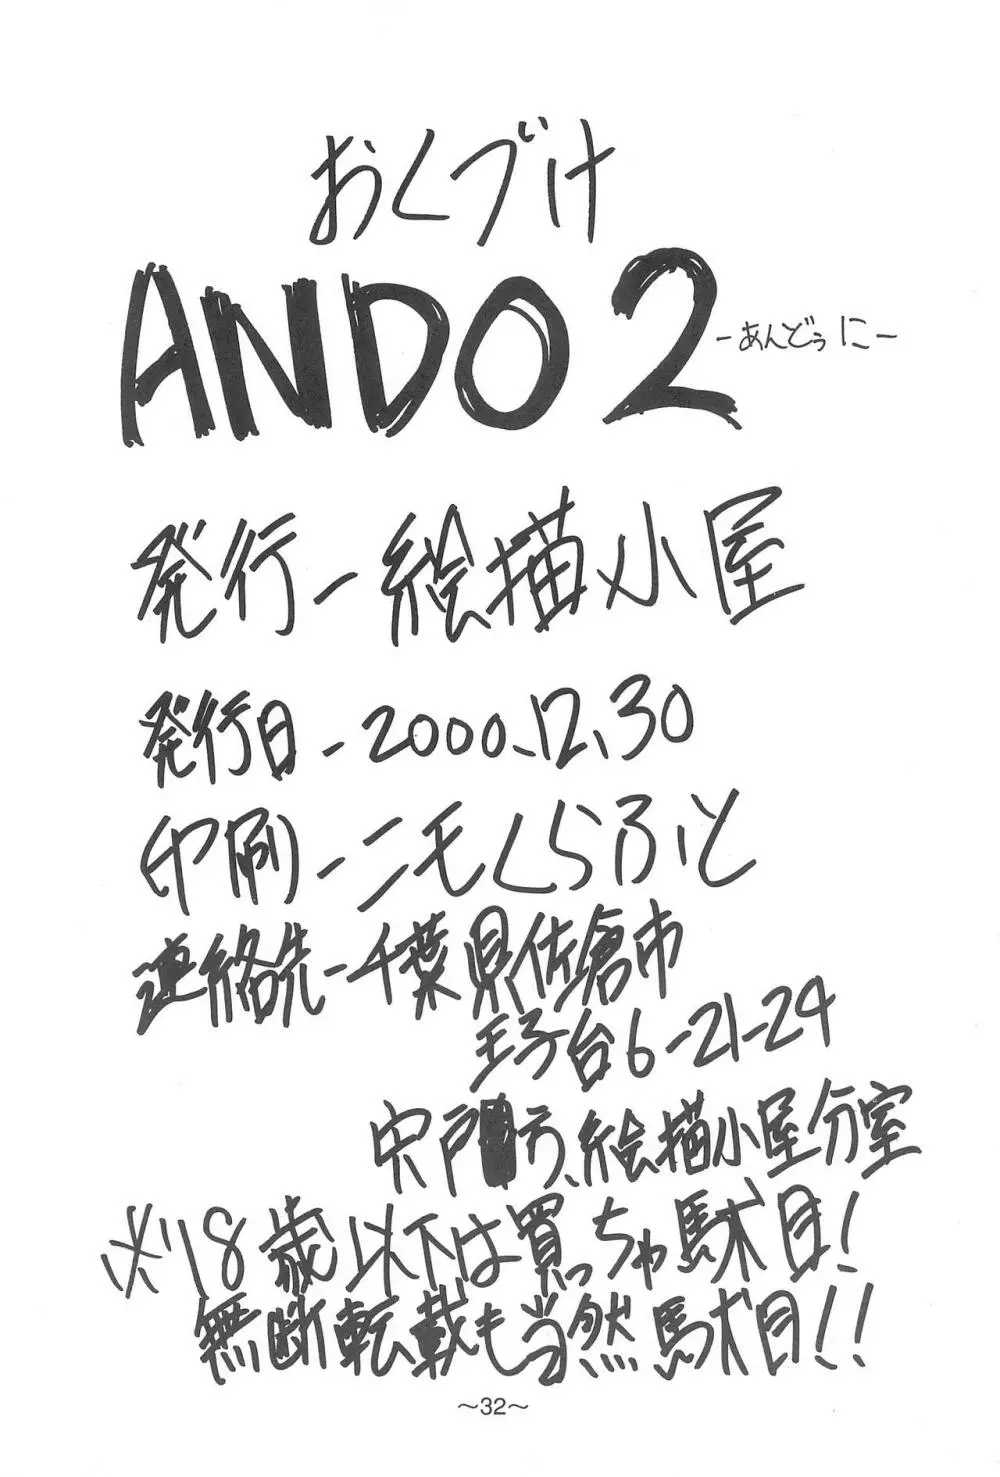 おくづけ
ANDO2 -あんどぅに-
発行-絵描小屋
発行日-2000.12.30
印刷-二毛くらふと
連絡先-千葉県佐倉市
王子台6-21-24
宍戸方、絵描小屋分室
※18歳以下は買っちゃ駄目!
無断転載も当然駄目!!
~32~